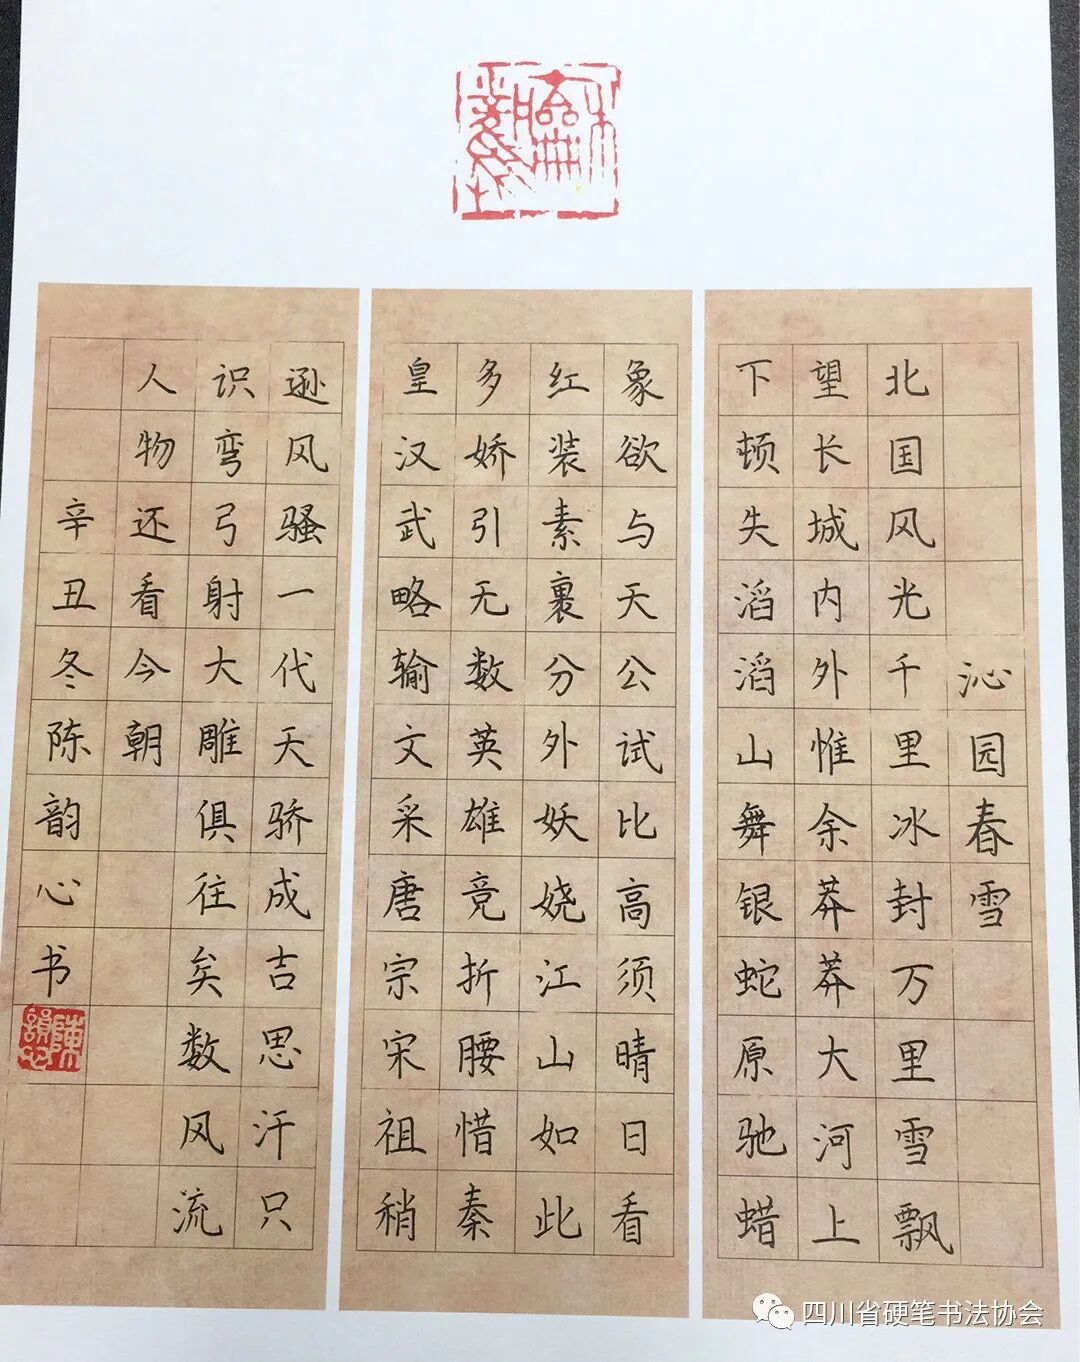 沁园春雪
北国风光千里冰封万里雪飘
望长城内外惟余莽莽大河上
下顿失滔滔山舞银蛇原驰蜡
象欲与天公试比高须晴日看
红装素裹分外妖娆江山如此
多娇引无数英雄竞折腰惜秦
皇汉武略输文采唐宗宋祖稍
逊风骚一代天骄成吉思汗只
识弯弓射大雕俱往矣数风流
人物还看今朝
辛丑冬陈韵心书
陳韻心
四川省硬笔书法协会